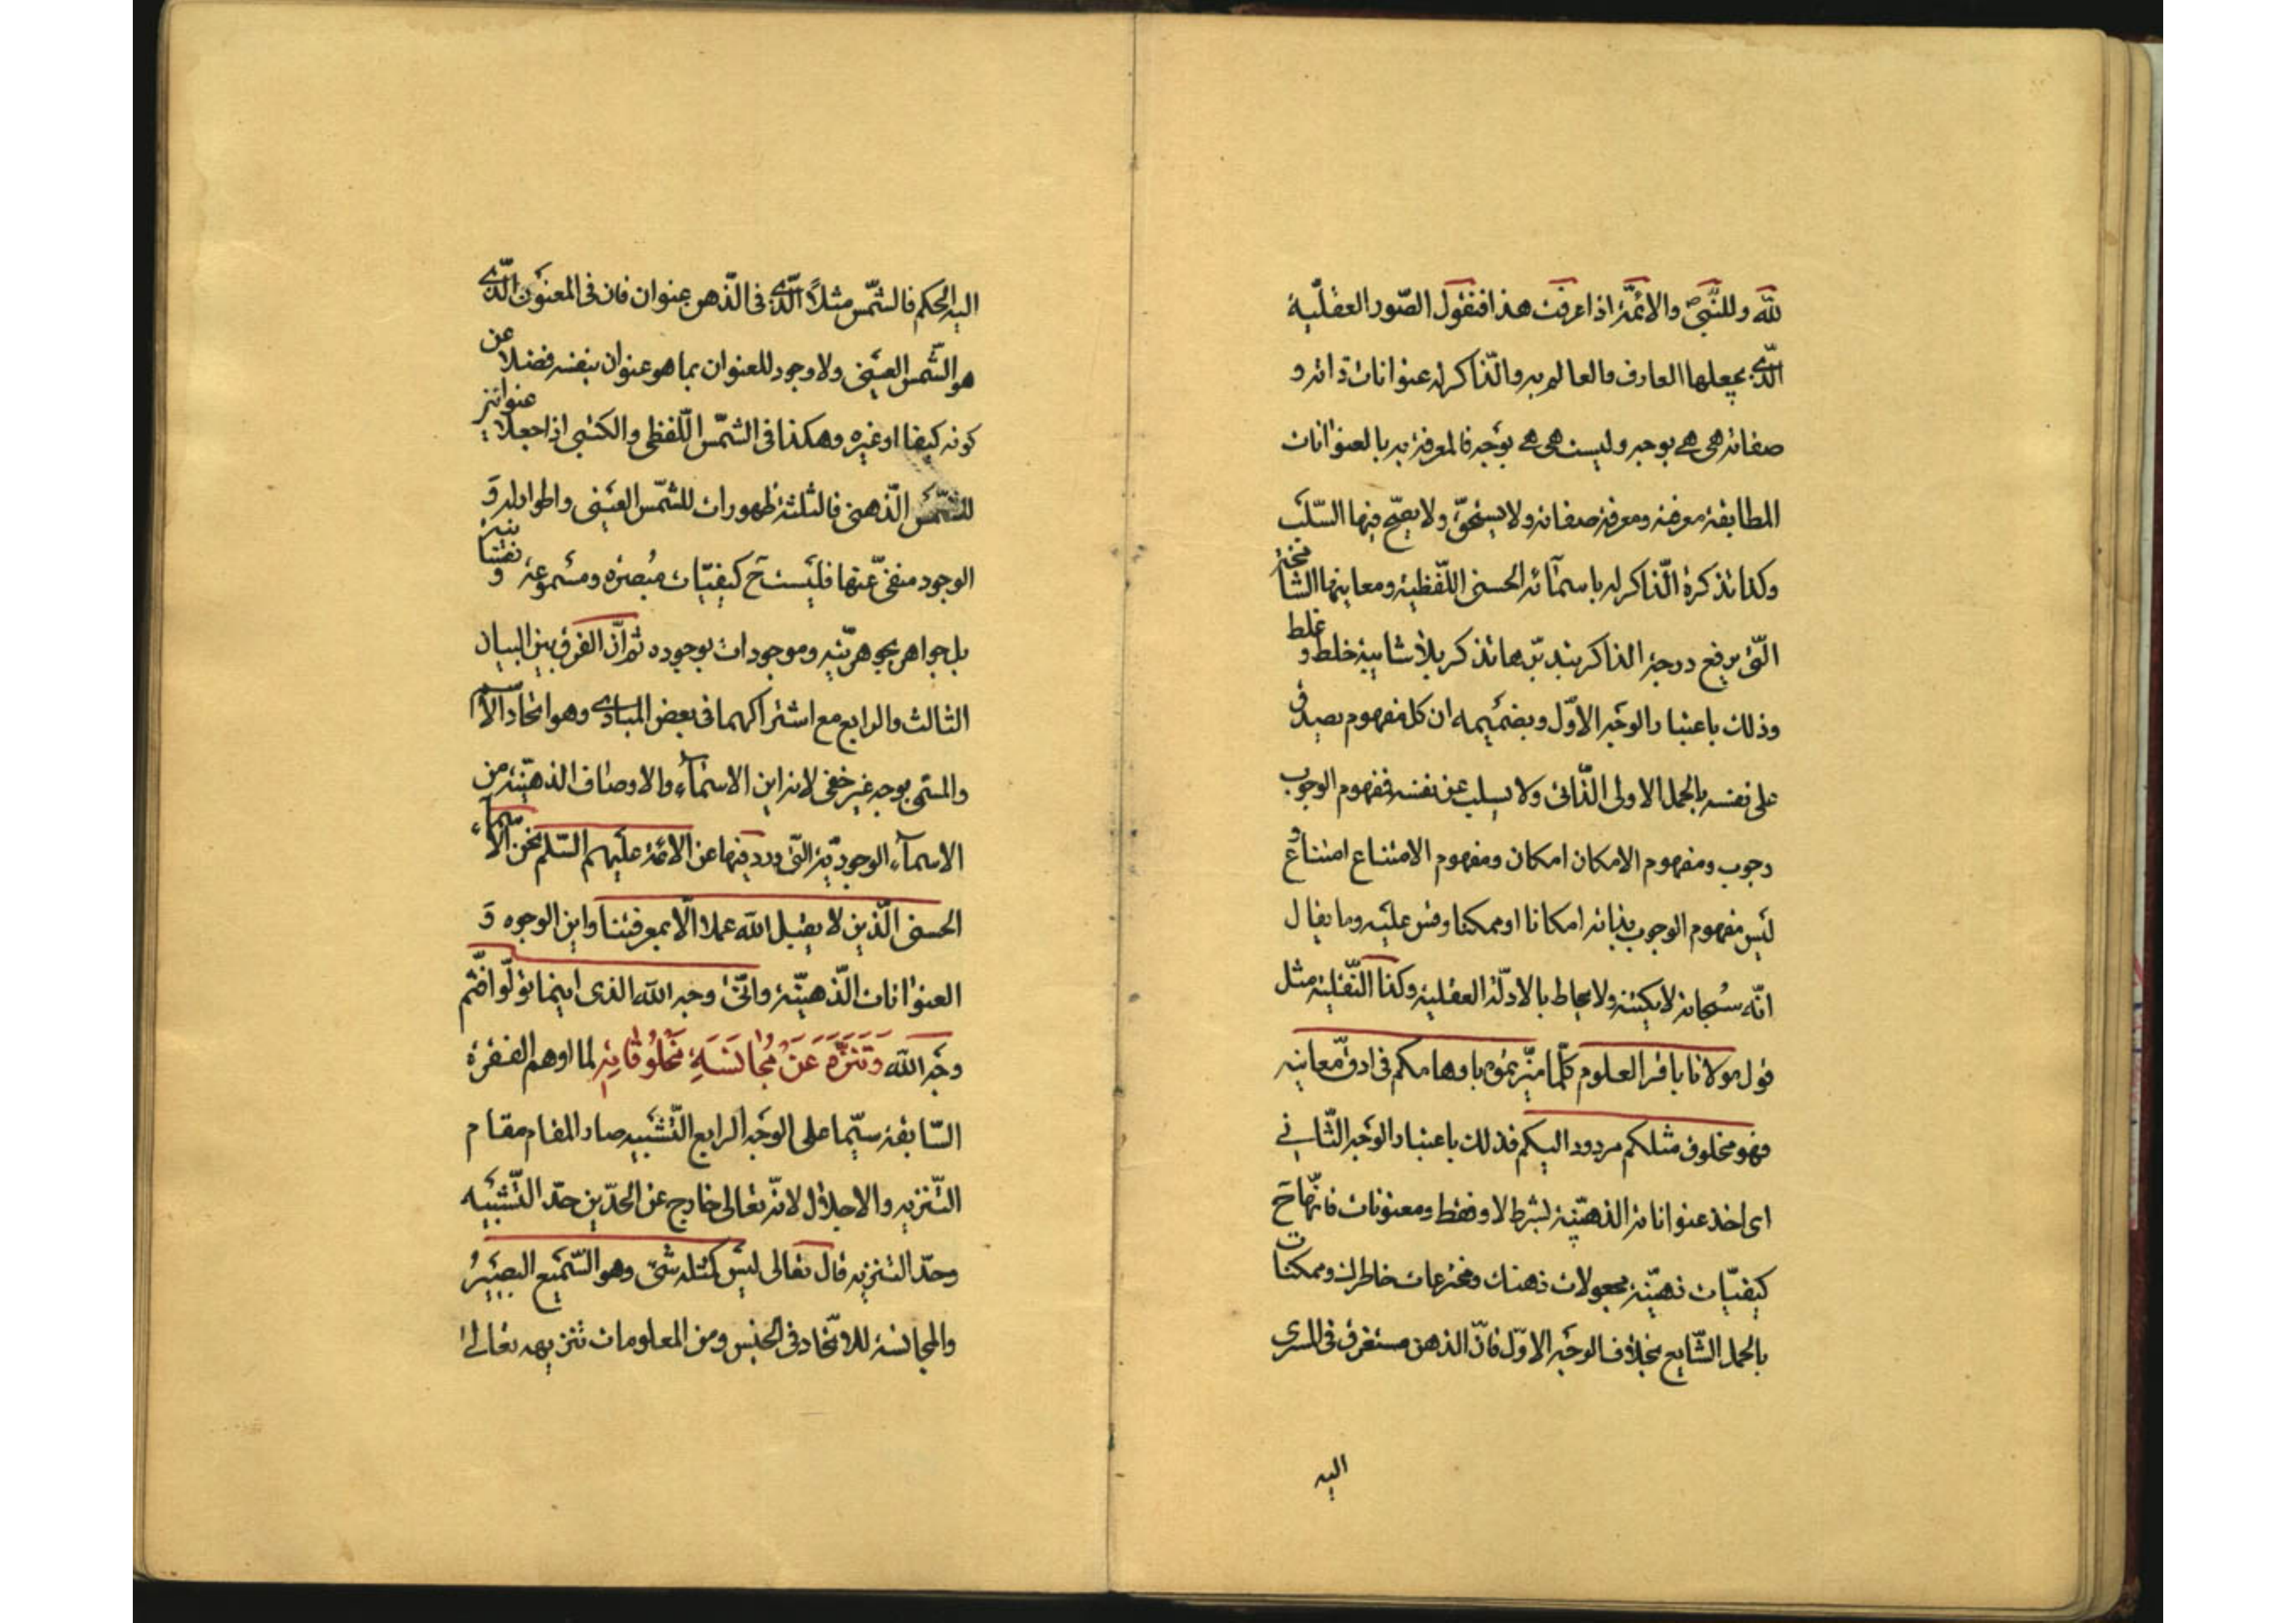 لله وللنبی والائمة اذا عرفت هذا فنقول الصّور العقلیّة
الّذی یجعلها العارف والعالم به والذّاکر له عنوانات ذاته و
صفاته هی هی بوجه ولیست هی هی بوجه فالمعرفة به بالعنوانات
المطابقة معرفته ومعرفة صفاته ولا یصحّ فیها السّلب
وکذا تذکرة الذّاکر له باسمائه الحسنی اللّفظیة ومعانیها الشامخة
الّتی یرفع درجة الذاکر بتدبّرها تذکر بلا شایبة خلط و غلط
وذلک باعتبار الوجه الاوّل وبضمیمه ان کل مفهوم یصدق
علی نفسه بالحمل الاولی الذّاتی ولا یسلب عن نفسه فمفهوم الوجوب
وجوب ومفهوم الامکان امکان ومفهوم الامتناع امتناع و
لیس مفهوم الوجوب بذاته امکانا او ممکنا وقس علیه وما یقال
انّه سبحانه لا یکتنه ولا یحاط بالادلّة العقلیة وکذا النّقلیة مثل
قول مولانا باقر العلوم کلّما میّزتموه باوهامکم فی ادقّ معانیه
فهو مخلوق مثلکم مردود الیکم فذلک باعتبار الوجه الثّانی
ای اخذ عنواناته الذهنیّة بشرط لا وفقط ومعنونات فانّها ح
کیفیّات ذهنیّة مجعولات ذهنک ومخترعات خاطرک وممکنات
بالحمل الشّایع بخلاف الوجه الاوّل فانّ الذهن مستغرق فی المسری
الیه
الیه الحکم فالشّمس مثلاً الّذی فی الذّهن عنوان فان فی المعنون الّذی
هو الشّمس العینی ولا وجود للعنوان بما هو عنوان بنفسه فضلا عن
کونه کیفا او غیره وهکذا فی الشّمس اللّفظی والکتبی اذا جعلا عنوانین
للشّمس الذّهنی فالثلثة ظهورات للشّمس العینی واطوار له و
الوجود منفیّ عنها فلیست ح کیفیّات مبصرة ومسموعة و نفسانیة
بل جواهر بجوهریّته وموجودات بوجوده ثم انّ الفرق بین البیان
الثالث والرابع مع اشتراکهما فی بعض المبادی وهو اتحاد الاسم
والمسمّی بوجه غیر خفی لانه این الاسماء والاوصاف الذهنیّة من
الاسماء الوجودیّة الّتی ورد فیها عن الائمة علیهم السّلم نحن الاسماء
الحسنی الّذین لا یقبل الله عملا الّا بمعرفتنا واین الوجوه و
العنوانات الذّهنیّة وانّی وجه الله الذی اینما تولّوا فثم
وجه الله وَتَنَزَّهَ عَنْ مُجٰانَسَةِ مَخْلُوقٰاتِهِ لما اوهم الفقرة
السّابقة سیّما علی الوجه الرابع التّشبیه صار المقام مقام
التّنزیه والاجلال لانّه تعالی خارج عن الحدّین حدّ التّشبیه
وحدّ التنزیه قال تعالی لیس کمثله شیء وهو السّمیع البصیر
والمجانسة للاتّحاد فی الجنس ومن المعلومات تنزیهه تعالی